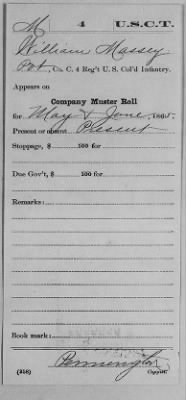 M 4 U.S.C.T.
William Massey
Pvt, Co. C, 4 Reg't U. S. Col'd Infantry.
Appears on
Company Muster Roll
for May & June, 1865.
Present or absent Present
Stoppage, $ 100 for
Due Gov't, $ 100 for
Remarks:
Book mark:
Pennington
(358) Copyist.